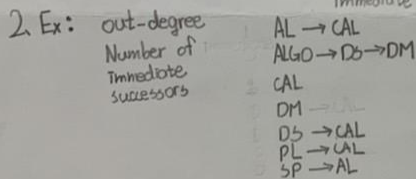 immediate
2. Ex: out-degree
Number of
immediate
successors
AL → CAL
ALGO → DS → DM
CAL
DM
DS → CAL
PL → CAL
SP → AL